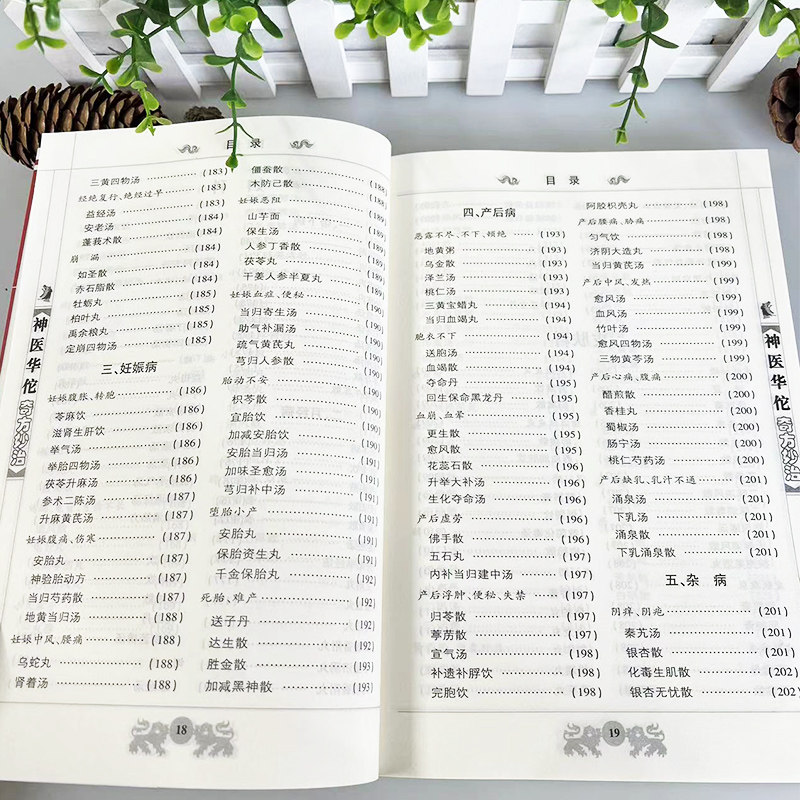 目 录
三黄四物汤 (183)
经绝复行、绝经过早 (183)
益经汤 (183)
安老汤 (184)
蓬莪术散 (184)
崩 漏 (184)
如圣散 (184)
赤石脂散 (184)
牡蛎丸 (185)
柏叶丸 (185)
禹余粮丸 (185)
定崩四物汤 (185)
三、妊娠病
妊娠腹胀、转胞 (186)
苓麻饮 (186)
滋肾生肝饮 (186)
举气汤 (186)
举胎四物汤 (186)
茯苓升麻汤 (186)
参术二陈汤 (187)
升麻黄芪汤 (187)
妊娠腹痛、伤寒 (187)
安胎丸 (187)
神验胎动方 (187)
当归芍药散 (187)
地黄当归汤 (188)
妊娠中风、腰痛 (188)
乌蛇丸 (188)
肾着汤 (188)
僵蚕散 (188)
木防己散 (188)
妊娠恶阻
山芋面
保生汤
人参丁香散
茯苓丸
干姜人参半夏丸 (189)
妊娠血症、便秘 (189)
当归寄生汤 (189)
助气补漏汤
疏气黄芪丸
芎归人参散
胎动不安 (190)
枳苓散 (190)
宜胎饮 (190)
加减安胎饮 (190)
安胎当归汤 (190)
加味圣愈汤
芎归补中汤 (191)
堕胎小产 (191)
安胎丸 (191)
保胎资生丸 (191)
千金保胎丸 (191)
死胎、难产 (192)
送子丹 (192)
达生散 (192)
胜金散 (193)
加减黑神散 (193)
神医华佗
奇方妙治
18
目 录
四、产后病
恶露不尽、不下、频绝 (193)
地黄粥 (193)
乌金散 (193)
泽兰汤 (193)
桃仁汤 (193)
三黄宝蜡丸 (194)
当归血竭丸 (194)
胞衣不下 (194)
送胞汤 (194)
血竭散 (194)
夺命丹 (195)
回生保命黑龙丹 (195)
血崩、血晕 (195)
更生散 (195)
愈风散 (195)
花蕊石散 (196)
升举大补汤 (196)
生化夺命汤 (196)
产后虚劳 (196)
佛手散 (196)
五石丸 (197)
内补当归建中汤 (197)
产后浮肿、便秘、失禁 (197)
归苓散 (197)
葶苈散 (197)
宣气汤 (198)
补遗补脬饮 (198)
完胞饮 (198)
阿胶枳壳丸 (198)
产后腰痛、胁痛 (198)
匀气饮 (198)
济阴大造丸 (198)
当归黄芪汤 (199)
产后中风、发热 (199)
愈风汤 (199)
血风汤 (199)
竹叶汤 (199)
愈风四物汤 (199)
三物黄芩汤 (199)
产后心痛、腹痛 (200)
醋煎散 (200)
香桂丸 (200)
蜀椒汤 (200)
肠宁汤 (200)
桃仁芍药汤 (200)
产后缺乳、乳汁不通 (201)
涌泉汤 (201)
下乳汤 (201)
涌泉散 (201)
下乳涌泉散 (201)
五、杂 病
阴痒、阴疮 (201)
秦艽汤 (201)
银杏散 (201)
化毒生肌散 (202)
银杏无忧散 (202)
神医华佗
奇方妙治
19